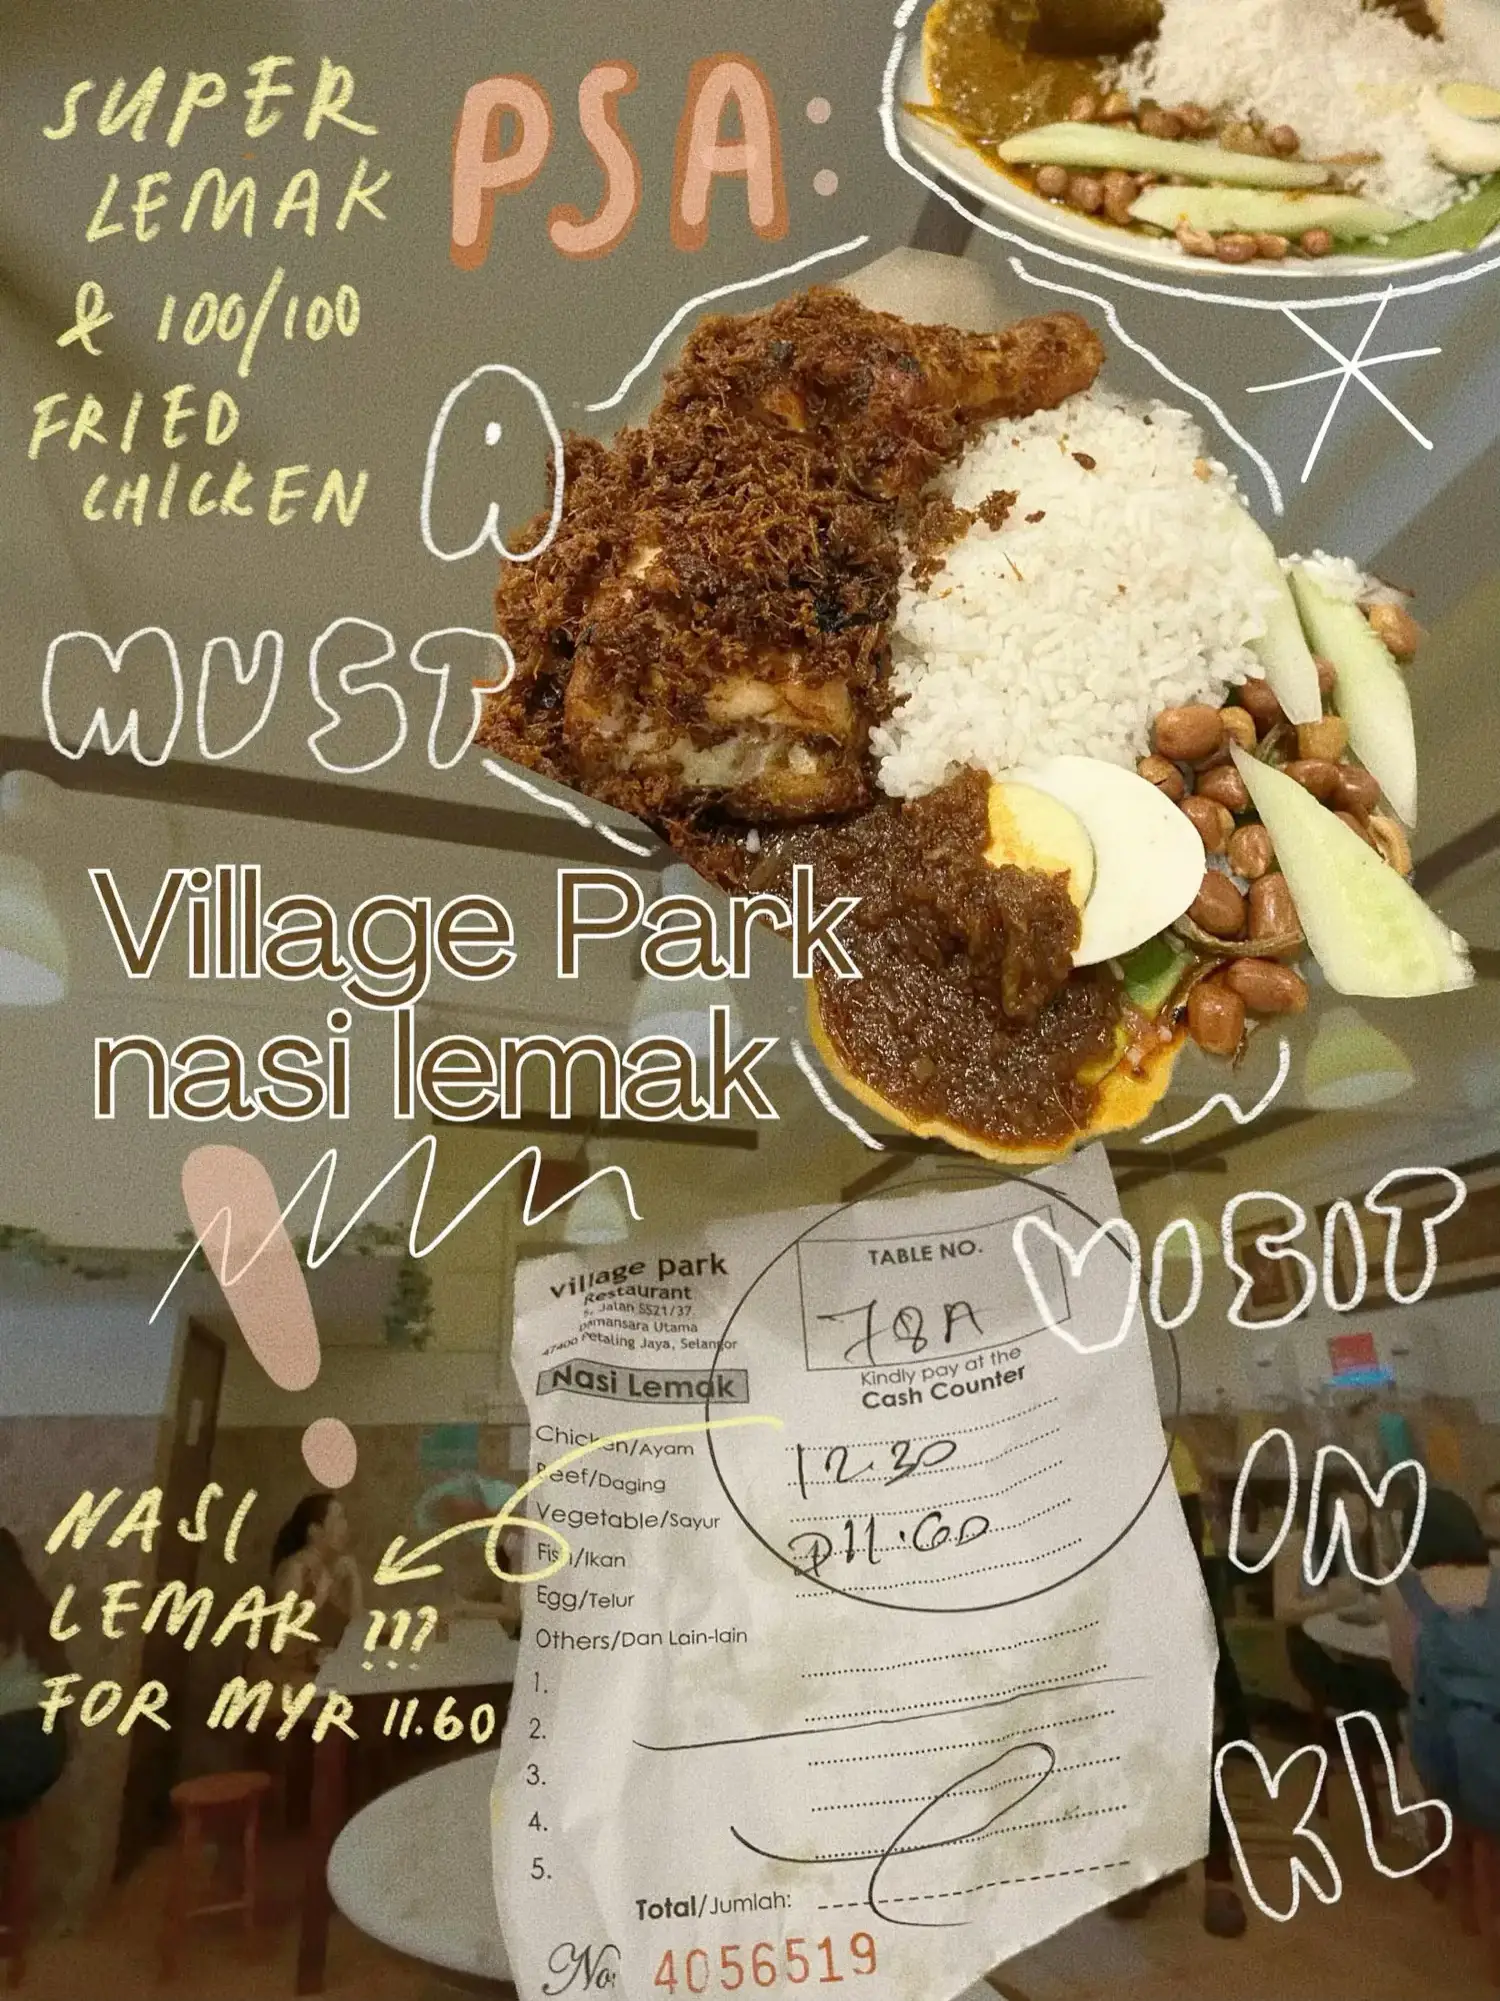 SUPER
LEMAK
& 100/100
FRIED
CHICKEN
PSA:
A
MUST
Village Park
nasi lemak
!
VISIT
IN
KL
NASI
LEMAK !!!
FOR MYR 11.60
village park
Restaurant
Jalan SS21/37,
Damansara Utama
47400 Petaling Jaya, Selangor
TABLE NO.
78A
Kindly pay at the
Cash Counter
Nasi Lemak
Chicken/Ayam
12.30
Beef/Daging
Vegetable/Sayur
11.60
Fish/Ikan
Egg/Telur
Others/Dan Lain-lain
1.
2.
3.
4.
5.
Total/Jumlah:
No: 4056519